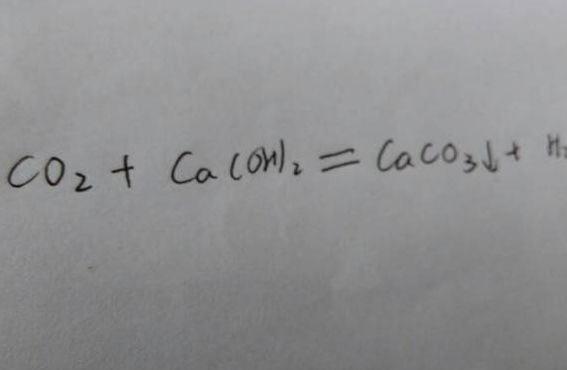 CO₂ + Ca(OH)₂ = CaCO₃↓ + H₂